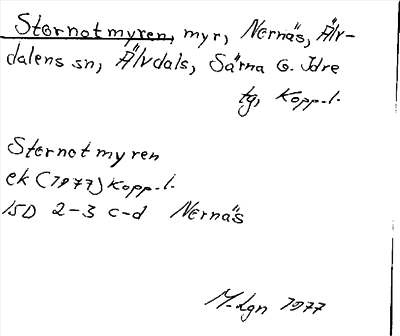 Stornotmyren, myr, Nornäs, Älv-
dalens sn, Älvdals, Särna o. Idre
tg, Kopp.l.
Stornotmyren
ek (1977) Kopp.l.
15D 2-3 c-d Nornäs
M-lgn 1977